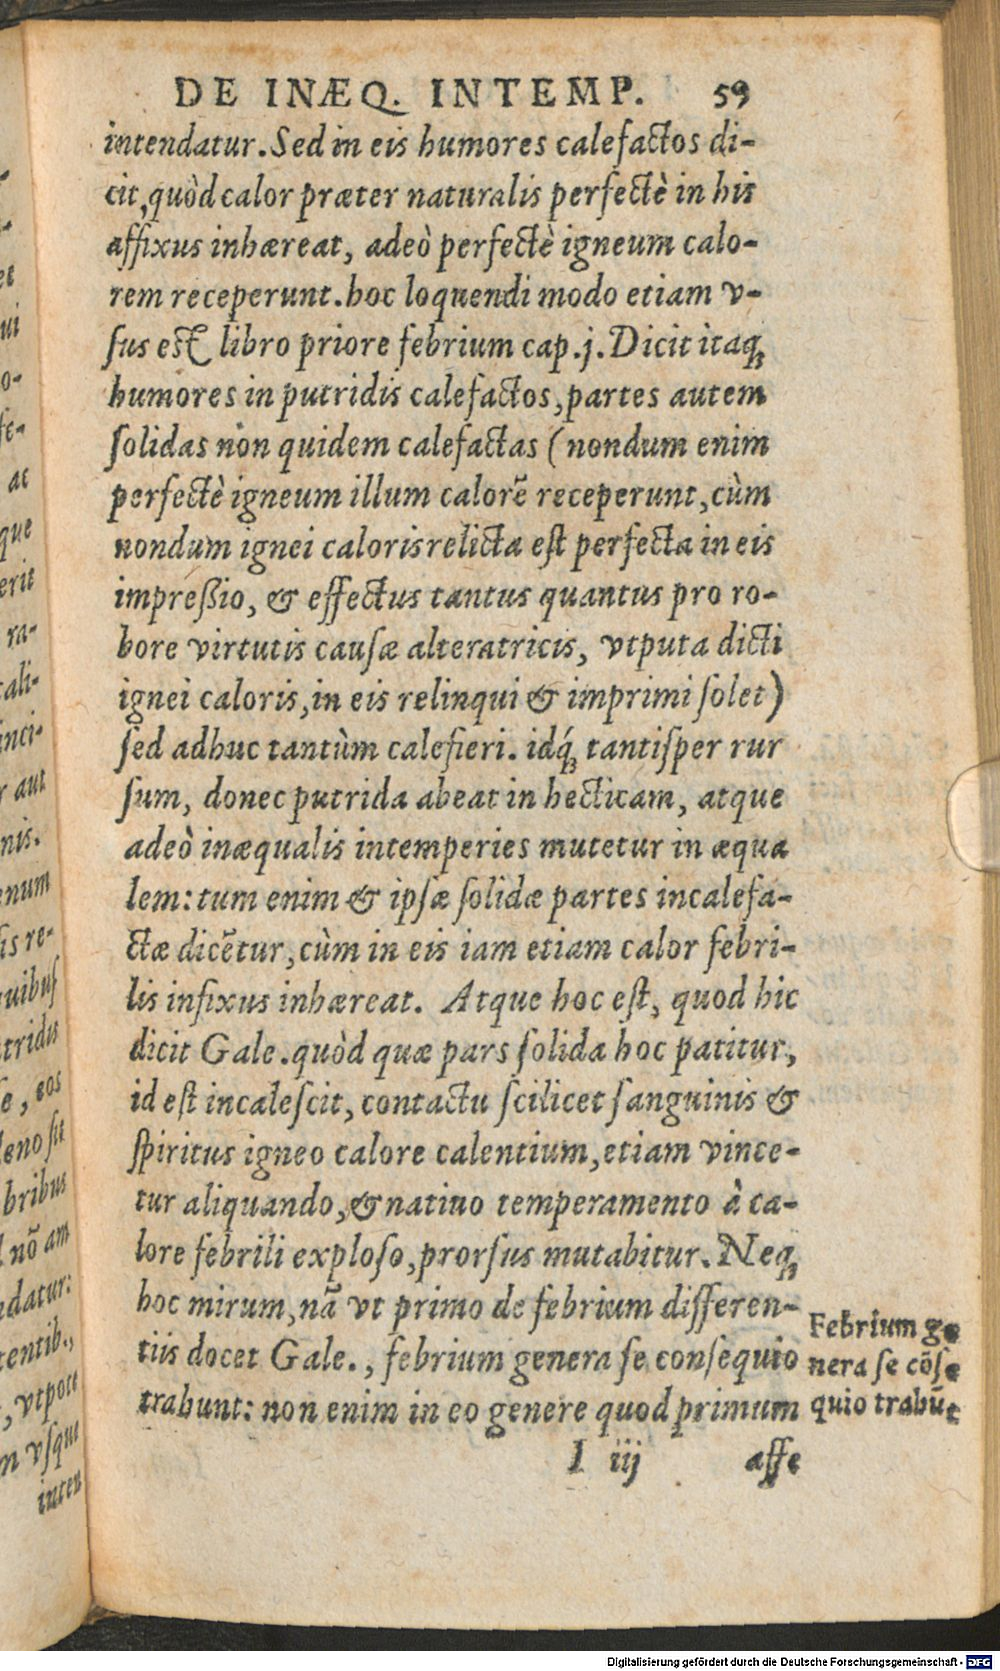 DE INÆQ. INTEMP. 59
intendatur. Sed in eis humores calefactos di-
cit, quòd calor præter naturalis perfectè in his
affixus inhæreat, adeò perfectè igneum calo-
rem receperunt. hoc loquendi modo etiam v-
ſus eſt libro priore febrium cap. j. Dicit itaq;
humores in putridis calefactos, partes autem
ſolidas non quidem calefactas (nondum enim
perfectè igneum illum calorẽ receperunt, cùm
nondum ignei caloris relicta eſt perfecta in eis
impreßio, & effectus tantus quantus pro ro-
bore virtutis causæ alteratricis, vtputa dicti
ignei caloris, in eis relinqui & imprimi ſolet)
ſed adhuc tantùm calefieri. idq́; tantiſper rur
ſum, donec putrida abeat in hecticam, atque
adeò inæqualis intemperies mutetur in æqua
lem: tum enim & ipſæ ſolidæ partes incalefa-
ctæ dicẽtur, cùm in eis iam etiam calor febri-
lis infixus inhæreat. Atque hoc eſt, quod hic
dicit Gale. quòd quæ pars ſolida hoc patitur,
id eſt incaleſcit, contactu ſcilicet ſanguinis &
ſpiritus igneo calore calentium, etiam vince-
tur aliquando, & natiuo temperamento à ca-
lore febrili exploſo, prorſus mutabitur. Neq;
hoc mirum, nã vt primo de febrium differen-
tiis docet Gale., febrium genera ſe conſequio
trahunt: non enim in eo genere quod primum
Febrium ge
nera ſe cõſe
quio trahũt
I iij aſſe
et
ui
o-
fe-
at
que
erit
ra-
cali-
inci-
r aut
nis.
enum
ſis re-
quibuſ
tridis
ſe, eos
leno ſit
bribus
l nõ am
ndatur:
tentib.,
, vtpote
m vſque
inten
Digitalisierung gefördert durch die Deutsche Forschungsgemeinschaft - DFG